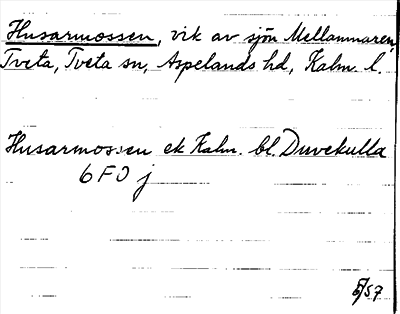 Husarmossen, vik av sjön Mellammaren,
Tveta, Tveta sn, Aspelands hd, Kalm. l.
Husarmossen ek Kalm. bl. Duvekulla
6F0j